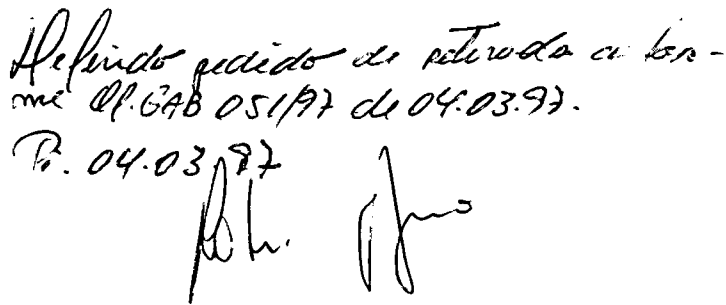 Deferido pedido de retirada con for-
me Of. GAB 051/97 de 04.03.97.
Pi. 04.03.97